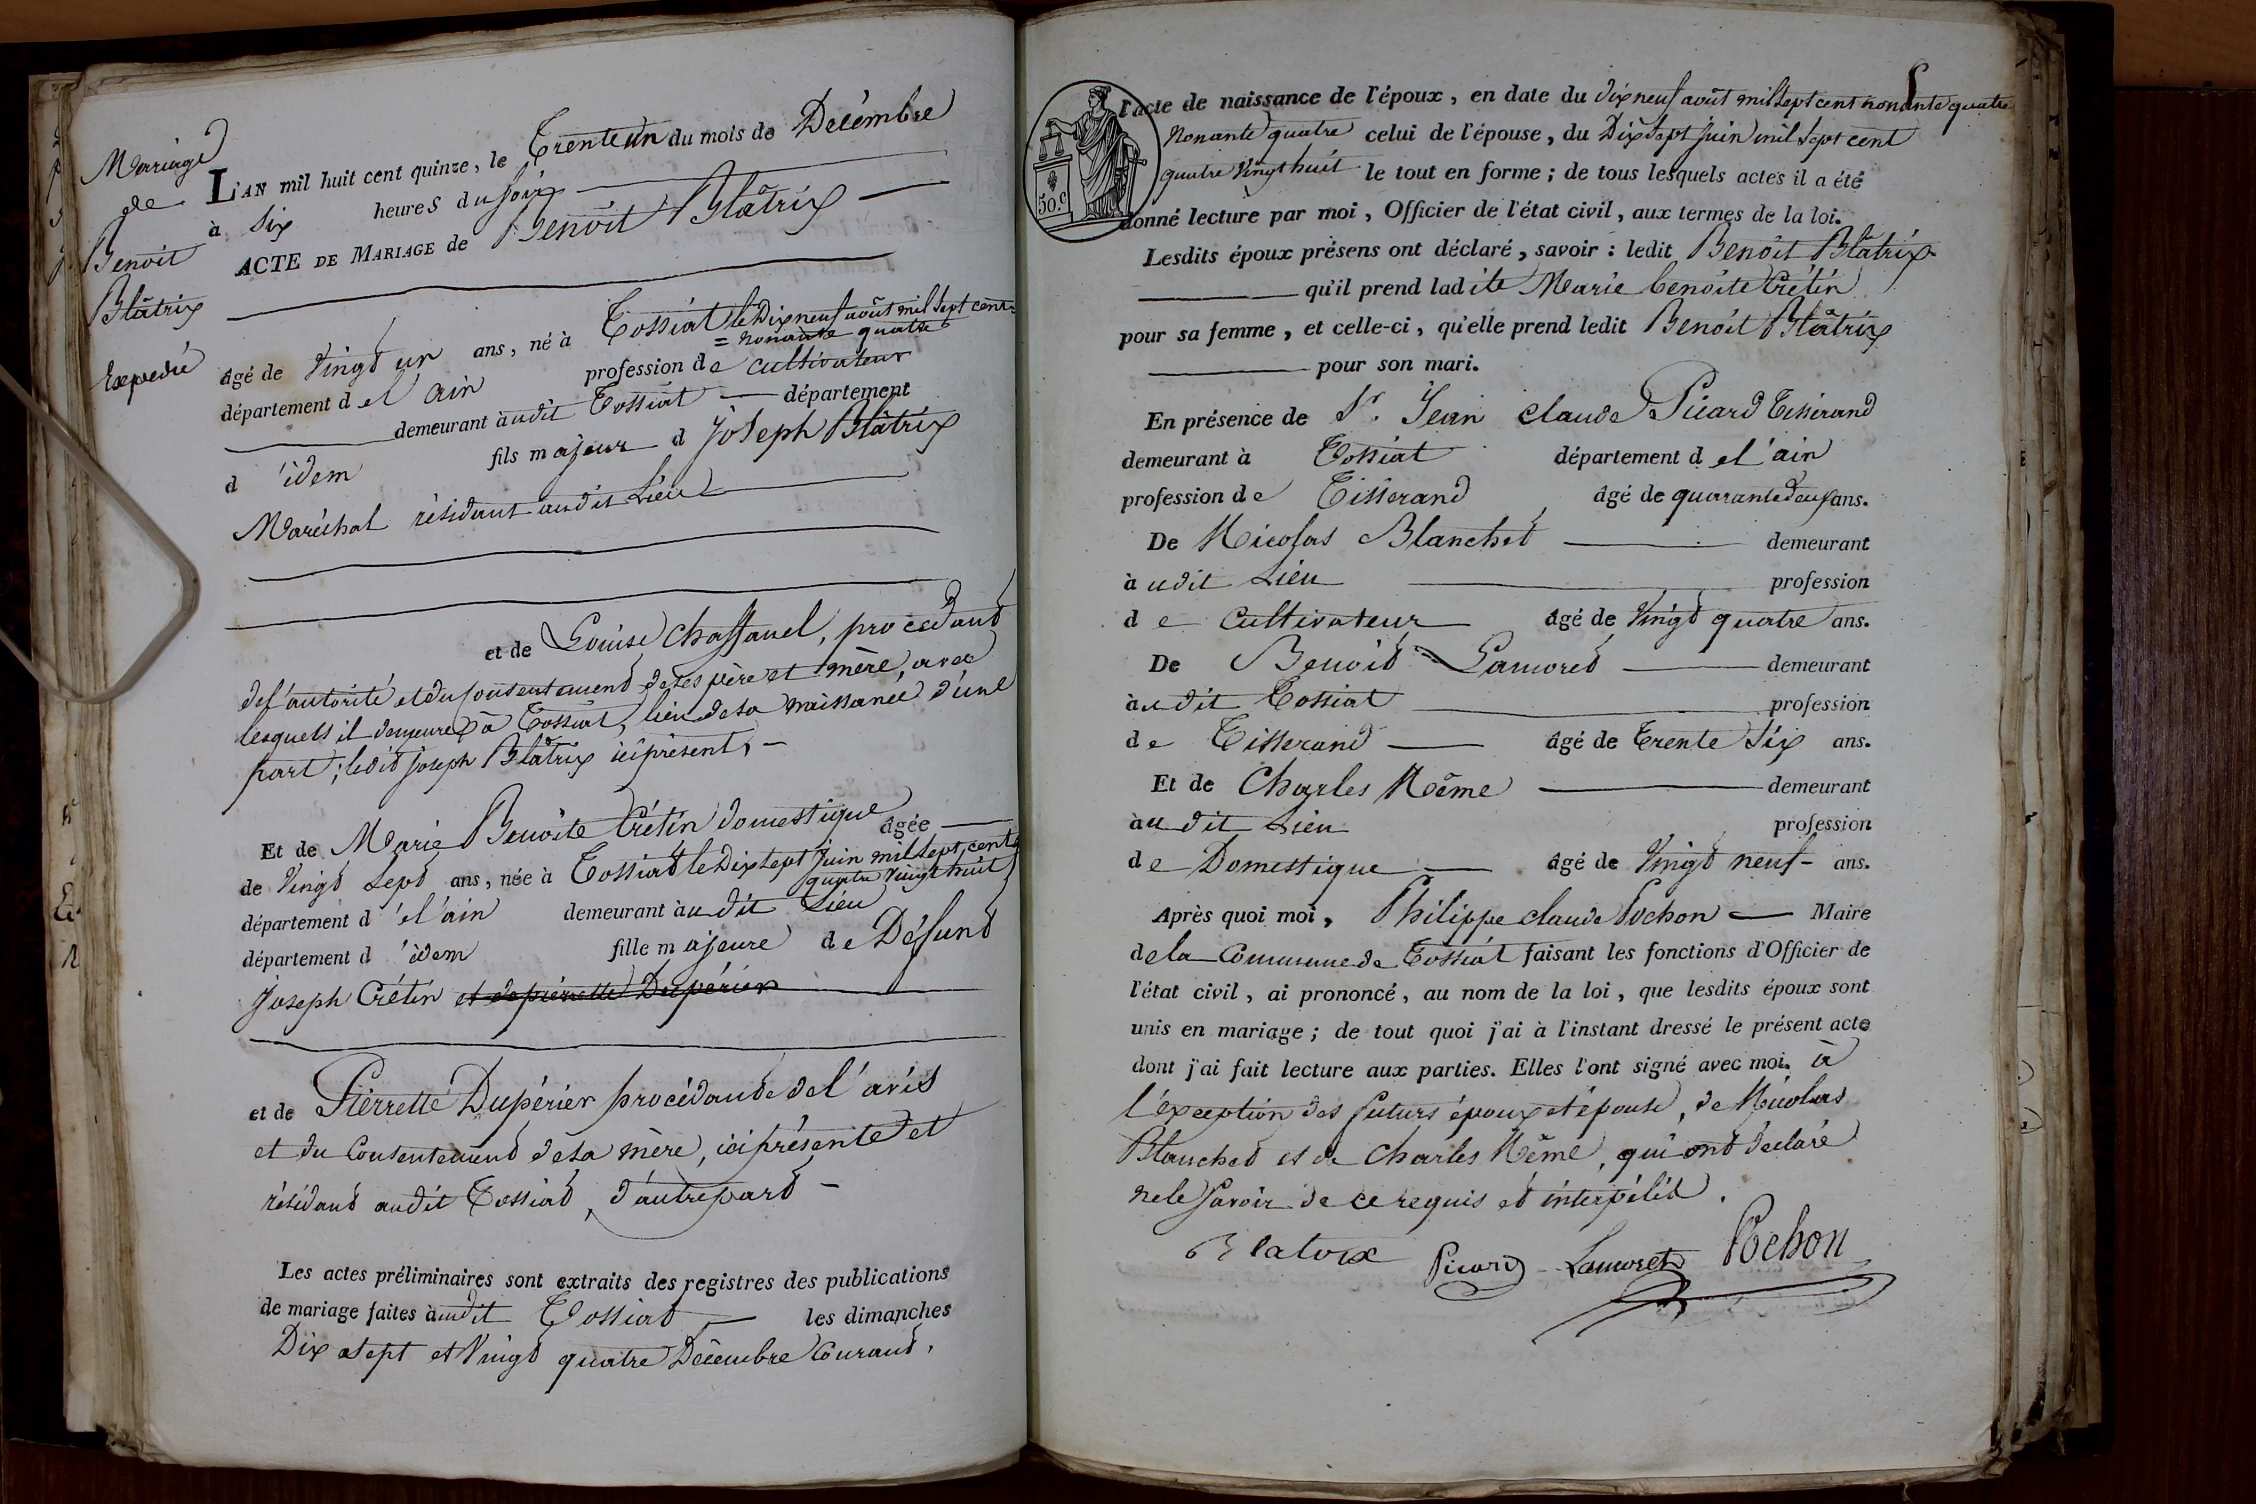 Mariage
de
Benoit
Blâtrix
Expedié
L'AN mil huit cent quinze, le Trente un du mois de Décémbre
à Six heures du soir
ACTE DE MARIAGE de Benoît Blâtrix
âgé de Vingt un ans, né à Tossiat le Dix neuf août mil sept cent
= nonante quatre
département de l'ain profession de cultivateur
demeurant audit Tossiat département
d 'idem fils majeur d Joseph Blâtrix
Maréchal résidant audit Lieu
et de Louise Chassanel, procédant
de l'autorité et du consentement de ses père et mère, avec
lesquels il demeure à Tossiat, lieu de sa naissance d'une
part; ledit Joseph Blâtrix ici présent,
Et de Marie Benoîte Crétin domestique âgée
de Vingt Sept ans, née à Tossiat le Dix sept juin mil sept cent
quatre vingt huit
département d 'el'ain demeurant audit Lieu
département d 'idem fille majeure de Défunt
Joseph Crétin et de pierrette Dupérier
et de Pierrette Dupérier procédante de l'avis
et du Consentement de sa mère, ici présente et
résidant audit Tossiat, d'autre part
Les actes préliminaires sont extraits des registres des publications
de mariage faites audit Tossiat les dimanches
Dix sept et Vingt quatre Décembre Courant,
l'acte de naissance de l'époux, en date du dix neuf août mil sept cent nonante quatre
Nonante quatre celui de l'épouse, du Dix sept juin mil sept cent
quatre Vingt huit le tout en forme; de tous lesquels actes il a été
donné lecture par moi, Officier de l'état civil, aux termes de la loi.
50.c
Lesdits époux présens ont déclaré, savoir: ledit Benoît Blâtrix
qu'il prend ladite Marie benoîte Crétin
pour sa femme, et celle-ci, qu'elle prend ledit Benoît Blâtrix
pour son mari.
En présence de Sr. Jean claude Picard Tisserand
demeurant à Tossiat département de l'ain
profession de Tisserand âgé de quarante deux ans.
De Nicolas Blanchet demeurant
audit Lieu profession
de Cultivateur âgé de Vingt quatre ans.
De Benoit Lamoret demeurant
audit Tossiat profession
de Tisserand âgé de Trente Six ans.
Et de Charles Nême demeurant
audit Lieu profession
de Domestique âgé de Vingt neuf ans.
Après quoi moi, Philippe claude Pochon Maire
de la Commune de Tossiat faisant les fonctions d'Officier de
l'état civil, ai prononcé, au nom de la loi, que lesdits époux sont
unis en mariage; de tout quoi j'ai à l'instant dressé le présent acte
dont j'ai fait lecture aux parties. Elles l'ont signé avec moi. à
l'exception des futurs époux et épouse, de Nicolas
Blanchet et de Charles Nême, qui ont déclaré
ne le Savoir de ce requis et interpélés.
Blatrix Picard Lamoret Pochon